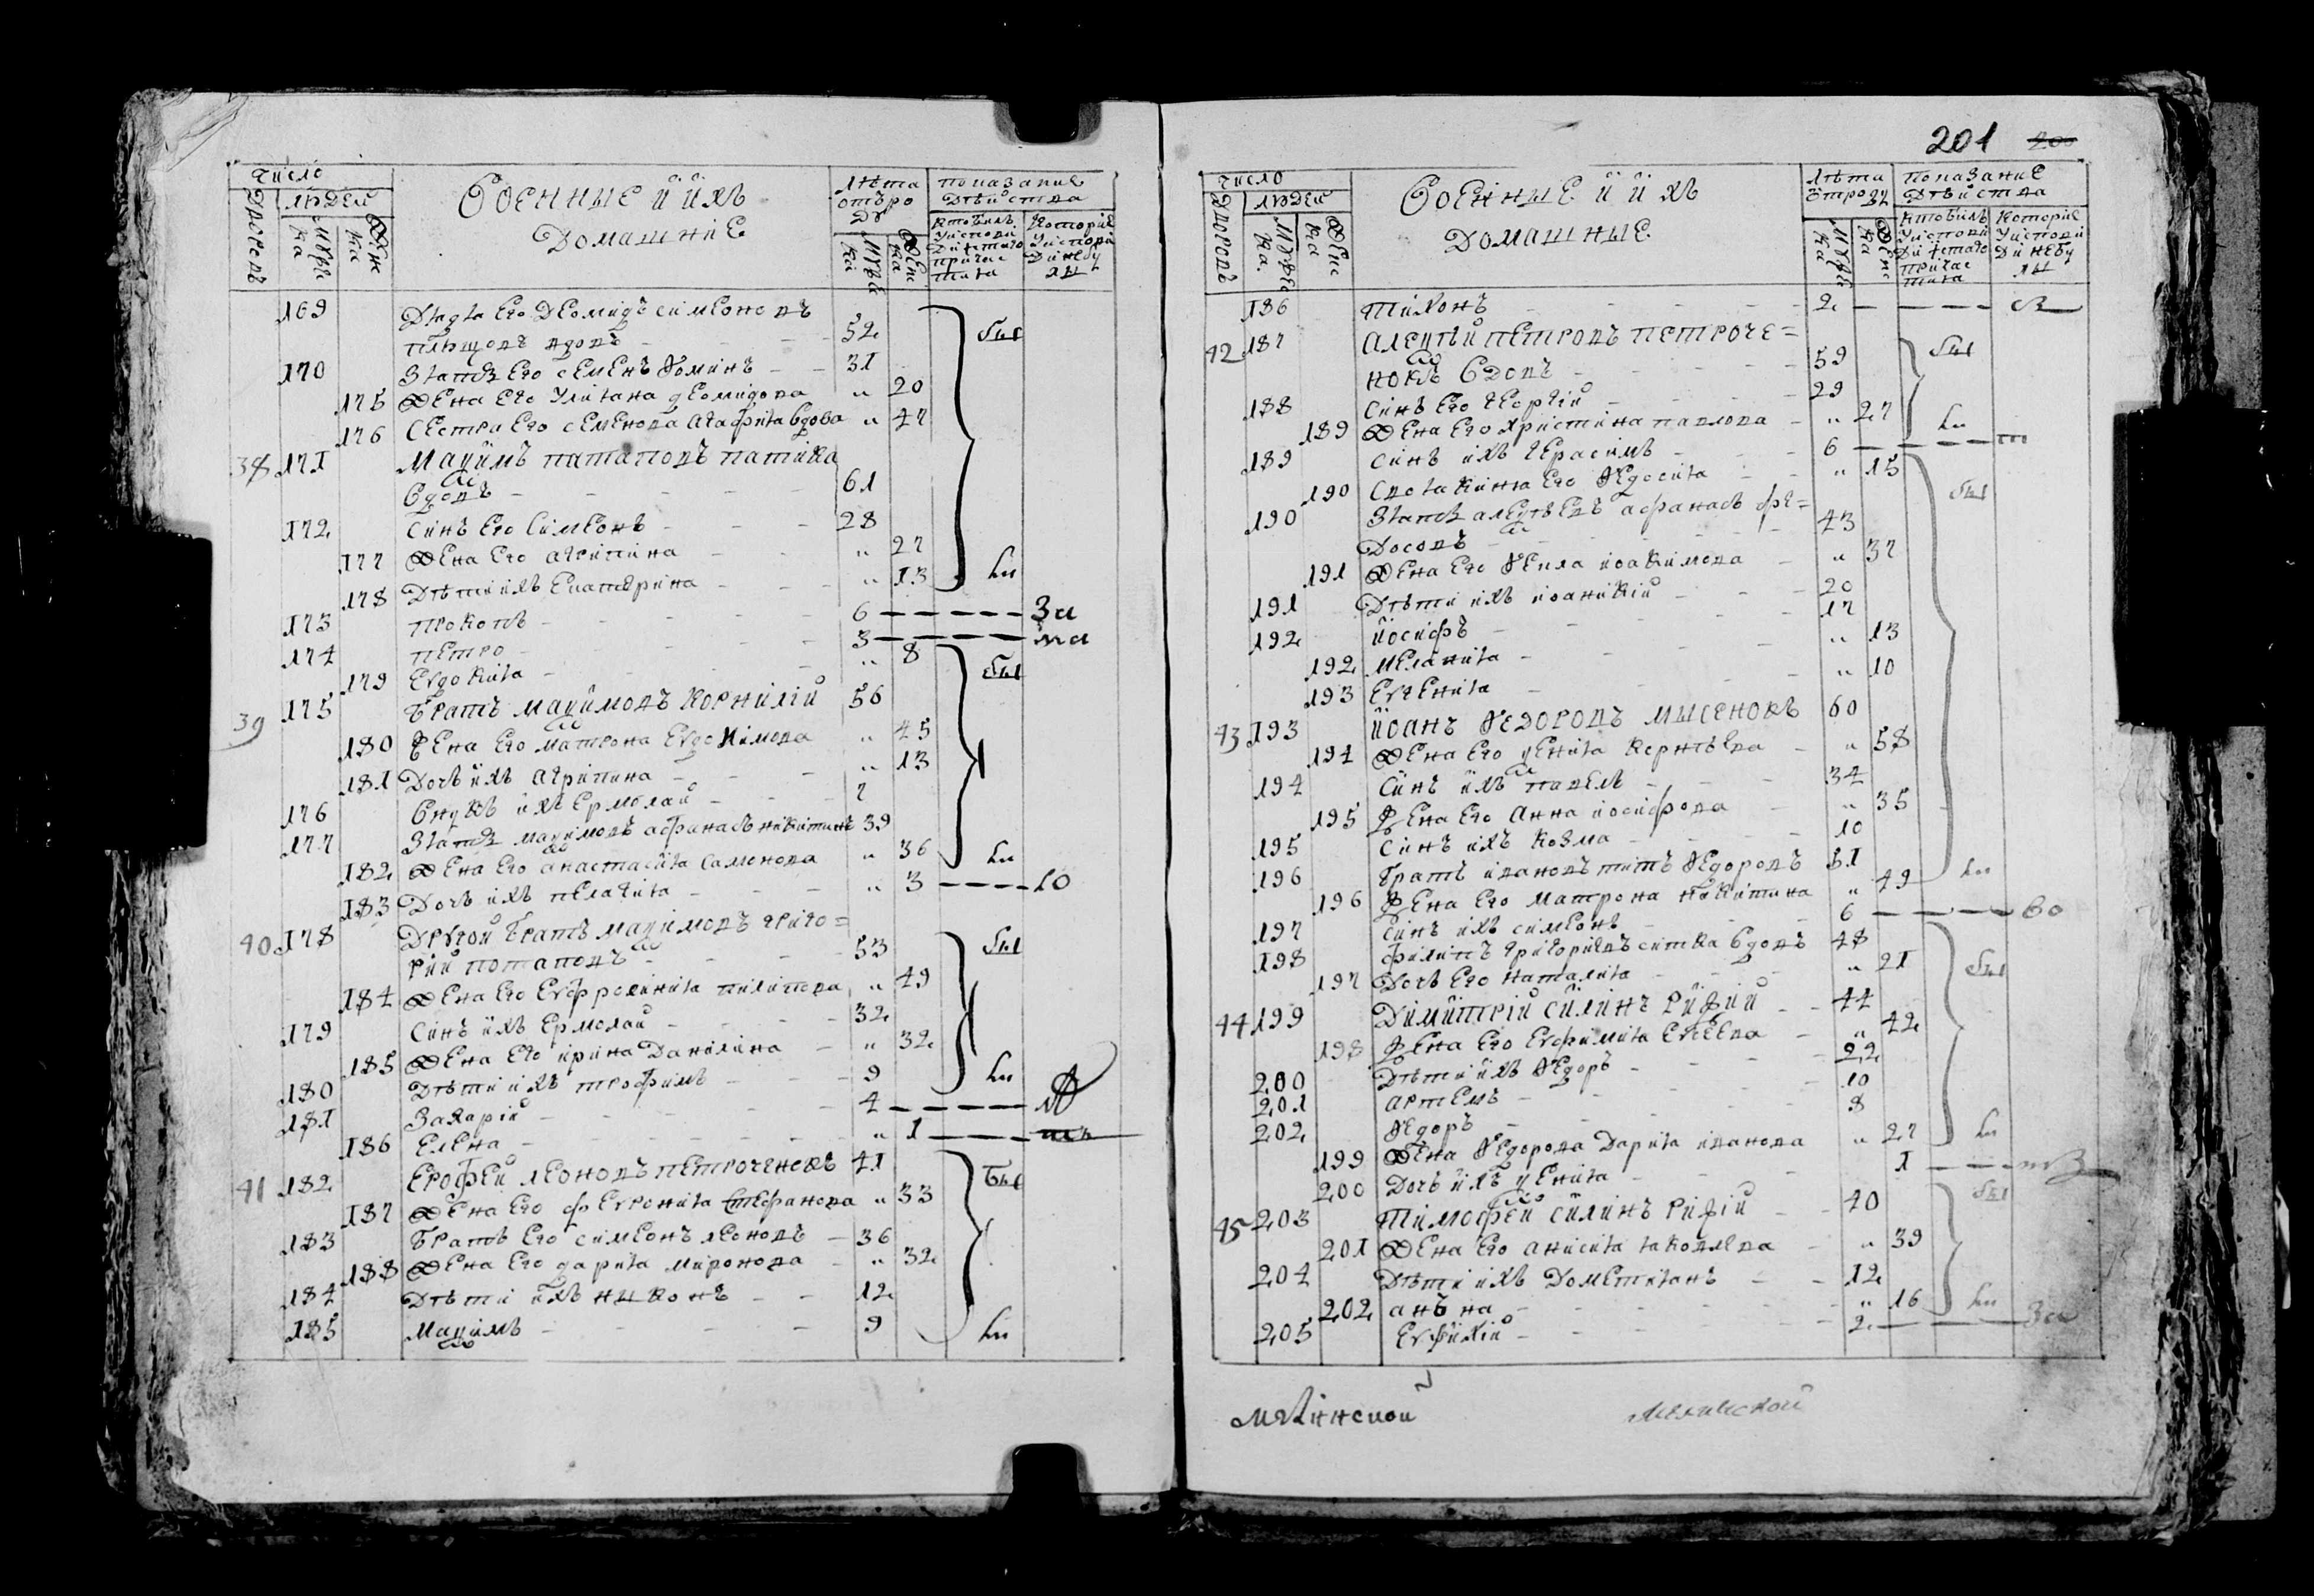 число
Дворовъ
людей
мужеска
женска
Военные и ихъ
Домашние
лѣта отъ роду
мужеска
женска
показание дѣйства
кто былъ у исповѣди и с.таго причастия
которие у исповѣди не были
169 Дядя его Деомидъ симеоновъ
плющовъ вдовъ 52 был
170 Зять его семенъ фоминъ 31
175 Жена его Улияна деомидова " 20
176 Сестра его семенова агафия вдова " 47
38 171 Мацимъ патаповъ
вдовъ 61
172 синъ его Симеонъ 28
177 Жена его агрипина " 27
178 Дѣти ихъ Екатерина " 13 ли
173 прокопъ 6 За
174 петро 3 ма
179 Евдокия " 8 был
39 175 Братъ мацимовъ корнилий 56
180 жена его матрона Евдокимова " 45
181 Дочь ихъ агрипина " 13
176 внукъ ихъ Ермолай 7
177 Зять мацимовъ афанасъ никитинъ 39
182 Жена его анастасия саменова " 36 ли
183 Дочь ихъ пелагия " 3 ю
40 178 Другой братъ мацимовъ григо=
рий потаповъ 53 был
184 Жена его Евфросиния пилипова " 49
179 синъ ихъ Ермолай 32
185 Жена его ирина Данилина " 32
180 Дѣти ихъ трофимъ 9 ли
181 Захарий 4
186 Елена " 1
41 182 Ерофей леоновъ петроченокъ 41 Был
187 Жена его феврония стефанова " 33
183 братъ его симеонъ леоновъ 36
188 Жена его дария миронова " 32
184 Дѣти ихъ никонъ 12
185 Мацимъ 9 ли
201 200
число
Дворовъ
людей
мужеска
женска
Военные и ихъ
Домашные
лѣта отъ роду
мужеска
женска
показание дѣйства
кто былъ у исповѣди и с.таго причастия
которие у исповѣди не были
186 тихонъ 2
42 187 Алецѣй петровъ петроче=
нокъ вдовъ 59 был
188 синъ его георгий 29
189 Жена его християна павлова " 27 ли
189 синъ ихъ герасимъ 6
190 Своякиня его федосия " 15 был
190 Зять алецѣевъ афанасъ фе=
досовъ 43
191 Жена его фекла иоакимова " 37
191 Дѣти ихъ иоаникий 20
192 иосифъ 17
192 мелания " 13
193 Евгения " 10
43 193 иоанъ федоровъ мысенокъ 60
194 Жена его цения корнѣева " 58
194 синъ ихъ павелъ 34
195 жена его анна иосифова " 35
195 синъ ихъ козма 10
196 братъ ивановъ титъ федоровъ 51
196 жена его матрона никитина " 49 ли
197 синъ ихъ симеонъ 6 во
198 филипъ григориевъ ситка вдовъ 48
197 Дочь его наталия " 21 был
44 199 Димитрий силинъ рижий 44
198 жена его Евфимия Евсеева " 42
200 Дѣти ихъ федоръ 22
201 артемъ 10
202 федоръ 8
199 Жена федорова Дария иванова " 27 ли
200 Дочь ихъ цения 1
45 203 тимофей силинъ рижий 40 был
201 Жена его анисия яковлева " 39
204 Дѣти ихъ Дометиянъ 12
202 анъна " 16 ли
205 Евфихий 2